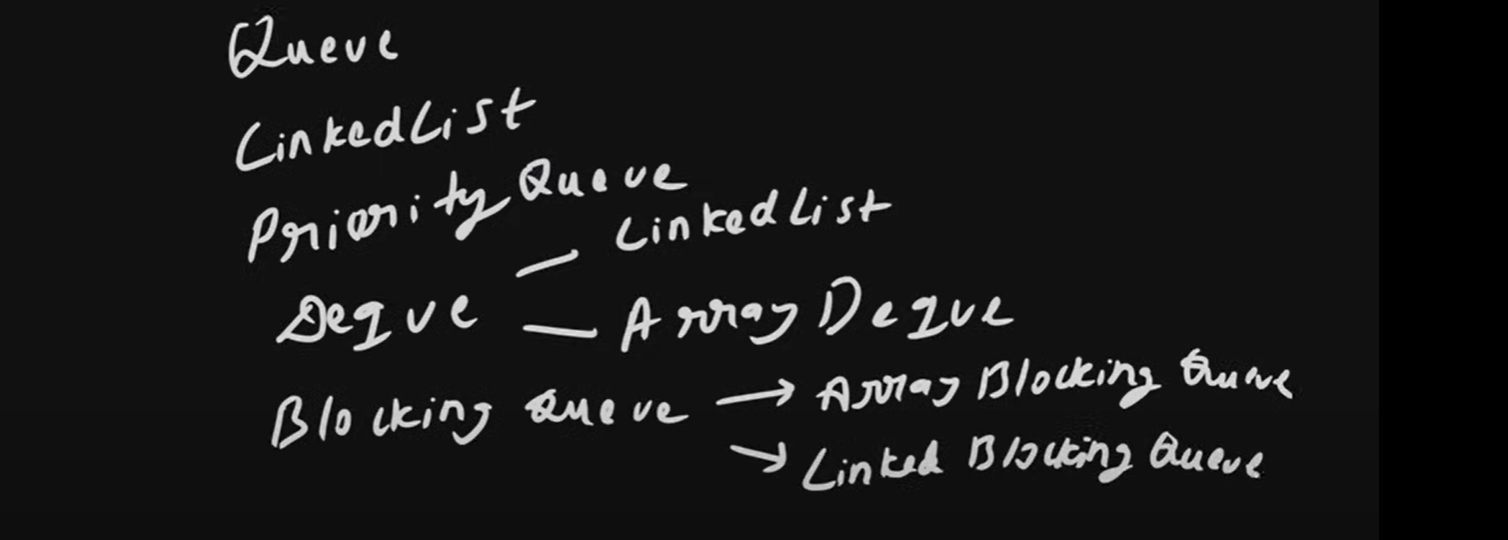 Queue
LinkedList
PriorityQueue
Deque — LinkedList
— ArrayDeque
Blocking Queue → Array Blocking Queue
→ Linked Blocking Queue